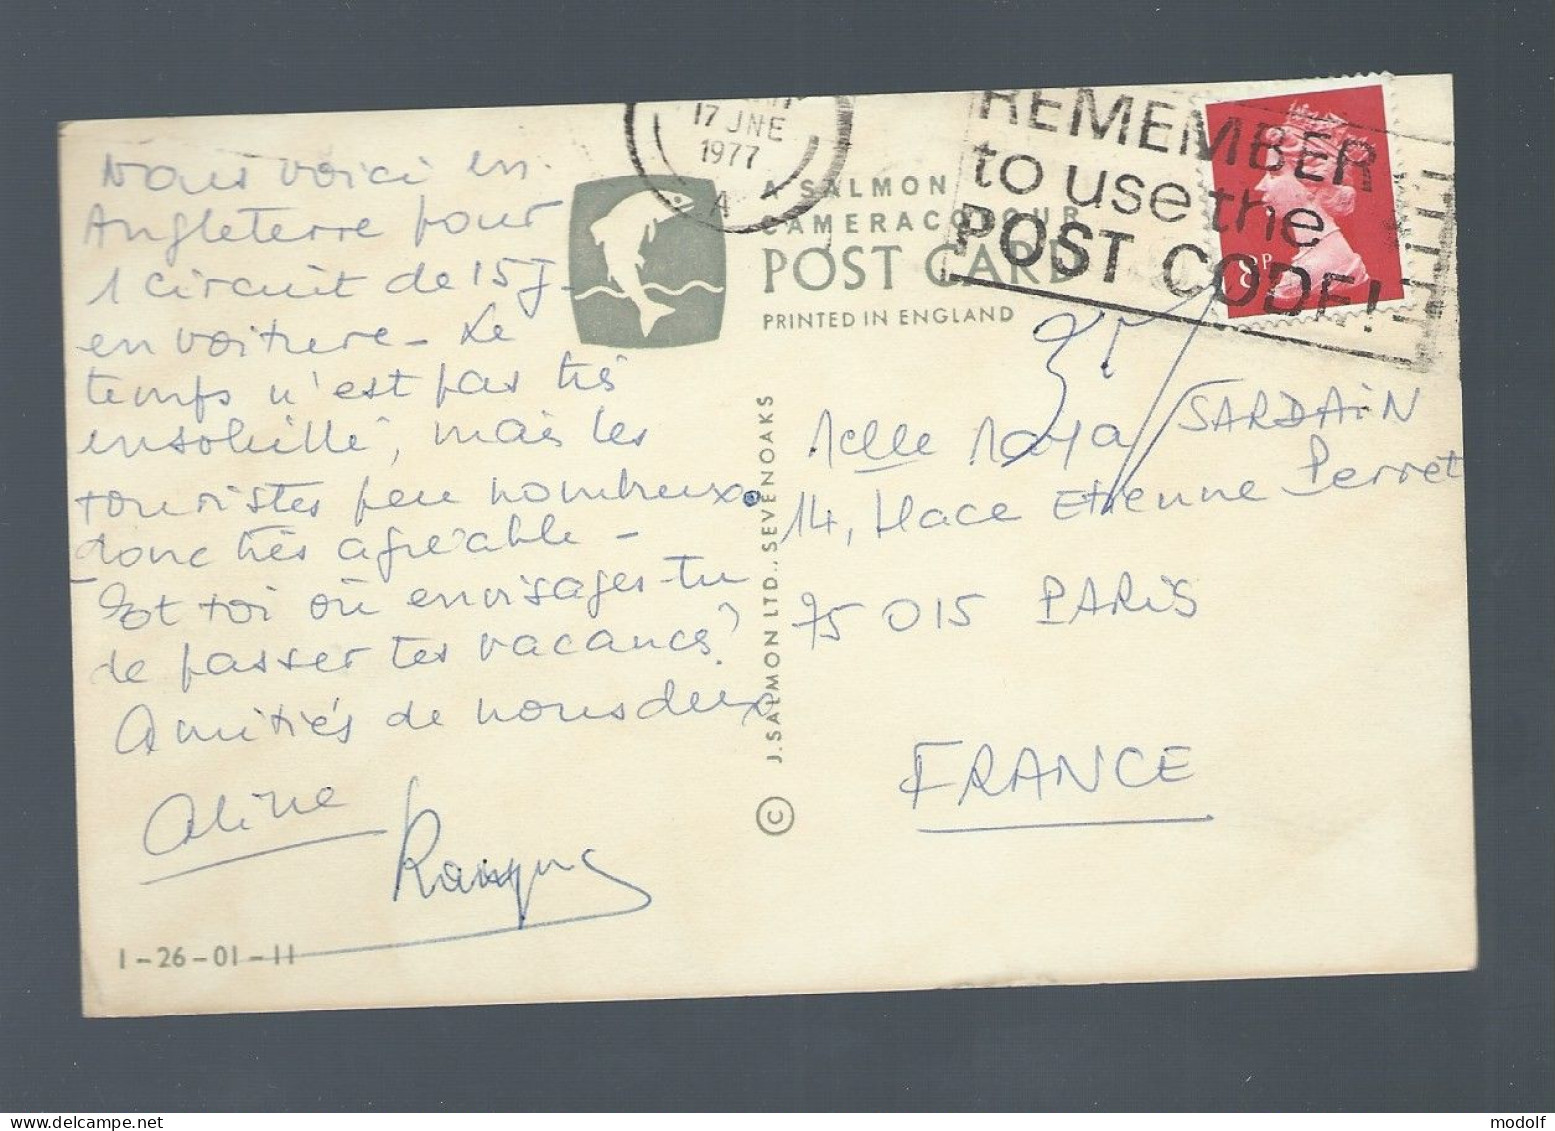 Nous voici en
Angleterre pour
1 circuit de 15 J.
en voiture - Le
temps n'est pas très
ensoleillé, mais les
touristes peu nombreux
donc très agréable -
Et toi où envisages-tu
de passer tes vacances?
Amitiés de nous deux
Aline
1-26-01-11
17 JNE
1977
A
A SALMON
CAMERACOLOUR
POST CARD
PRINTED IN ENGLAND
© J. SALMON LTD., SEVENOAKS
REMEMBER
to use the
POST CODE!
8P
Melle Maya SARDAIN
14, Place Etienne Perret
75015 PARIS
FRANCE
modolf